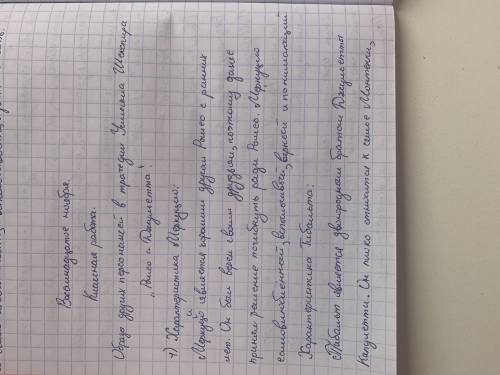 Восемнадцатое ноября.
Классная работа.
Образ других персонажей в трагедии Уильяма Шекспира
„Ромео и Джульетта"
1) Характеристика Меркуцио:
Меркуцио является хорошим другом Ромео с ранних
лет. Он был верен своим друзьям, поэтому даже
принял решение погибнуть ради Ромео. Меркуцио
вспыльчивый, верный и понимающий
Характеристика Тибальта:
Тибальт является двоюродным братом Джульетты
Капулетти. Он плохо относится к семье Монтекки,